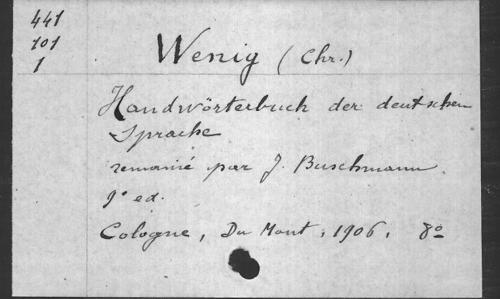 441
101
1
Wenig (Chr.)
Handwörterbuch der deutschen
Sprache
remanié par J. Buschmann.
9e ed.
Cologne, Du Mont, 1906, 8o